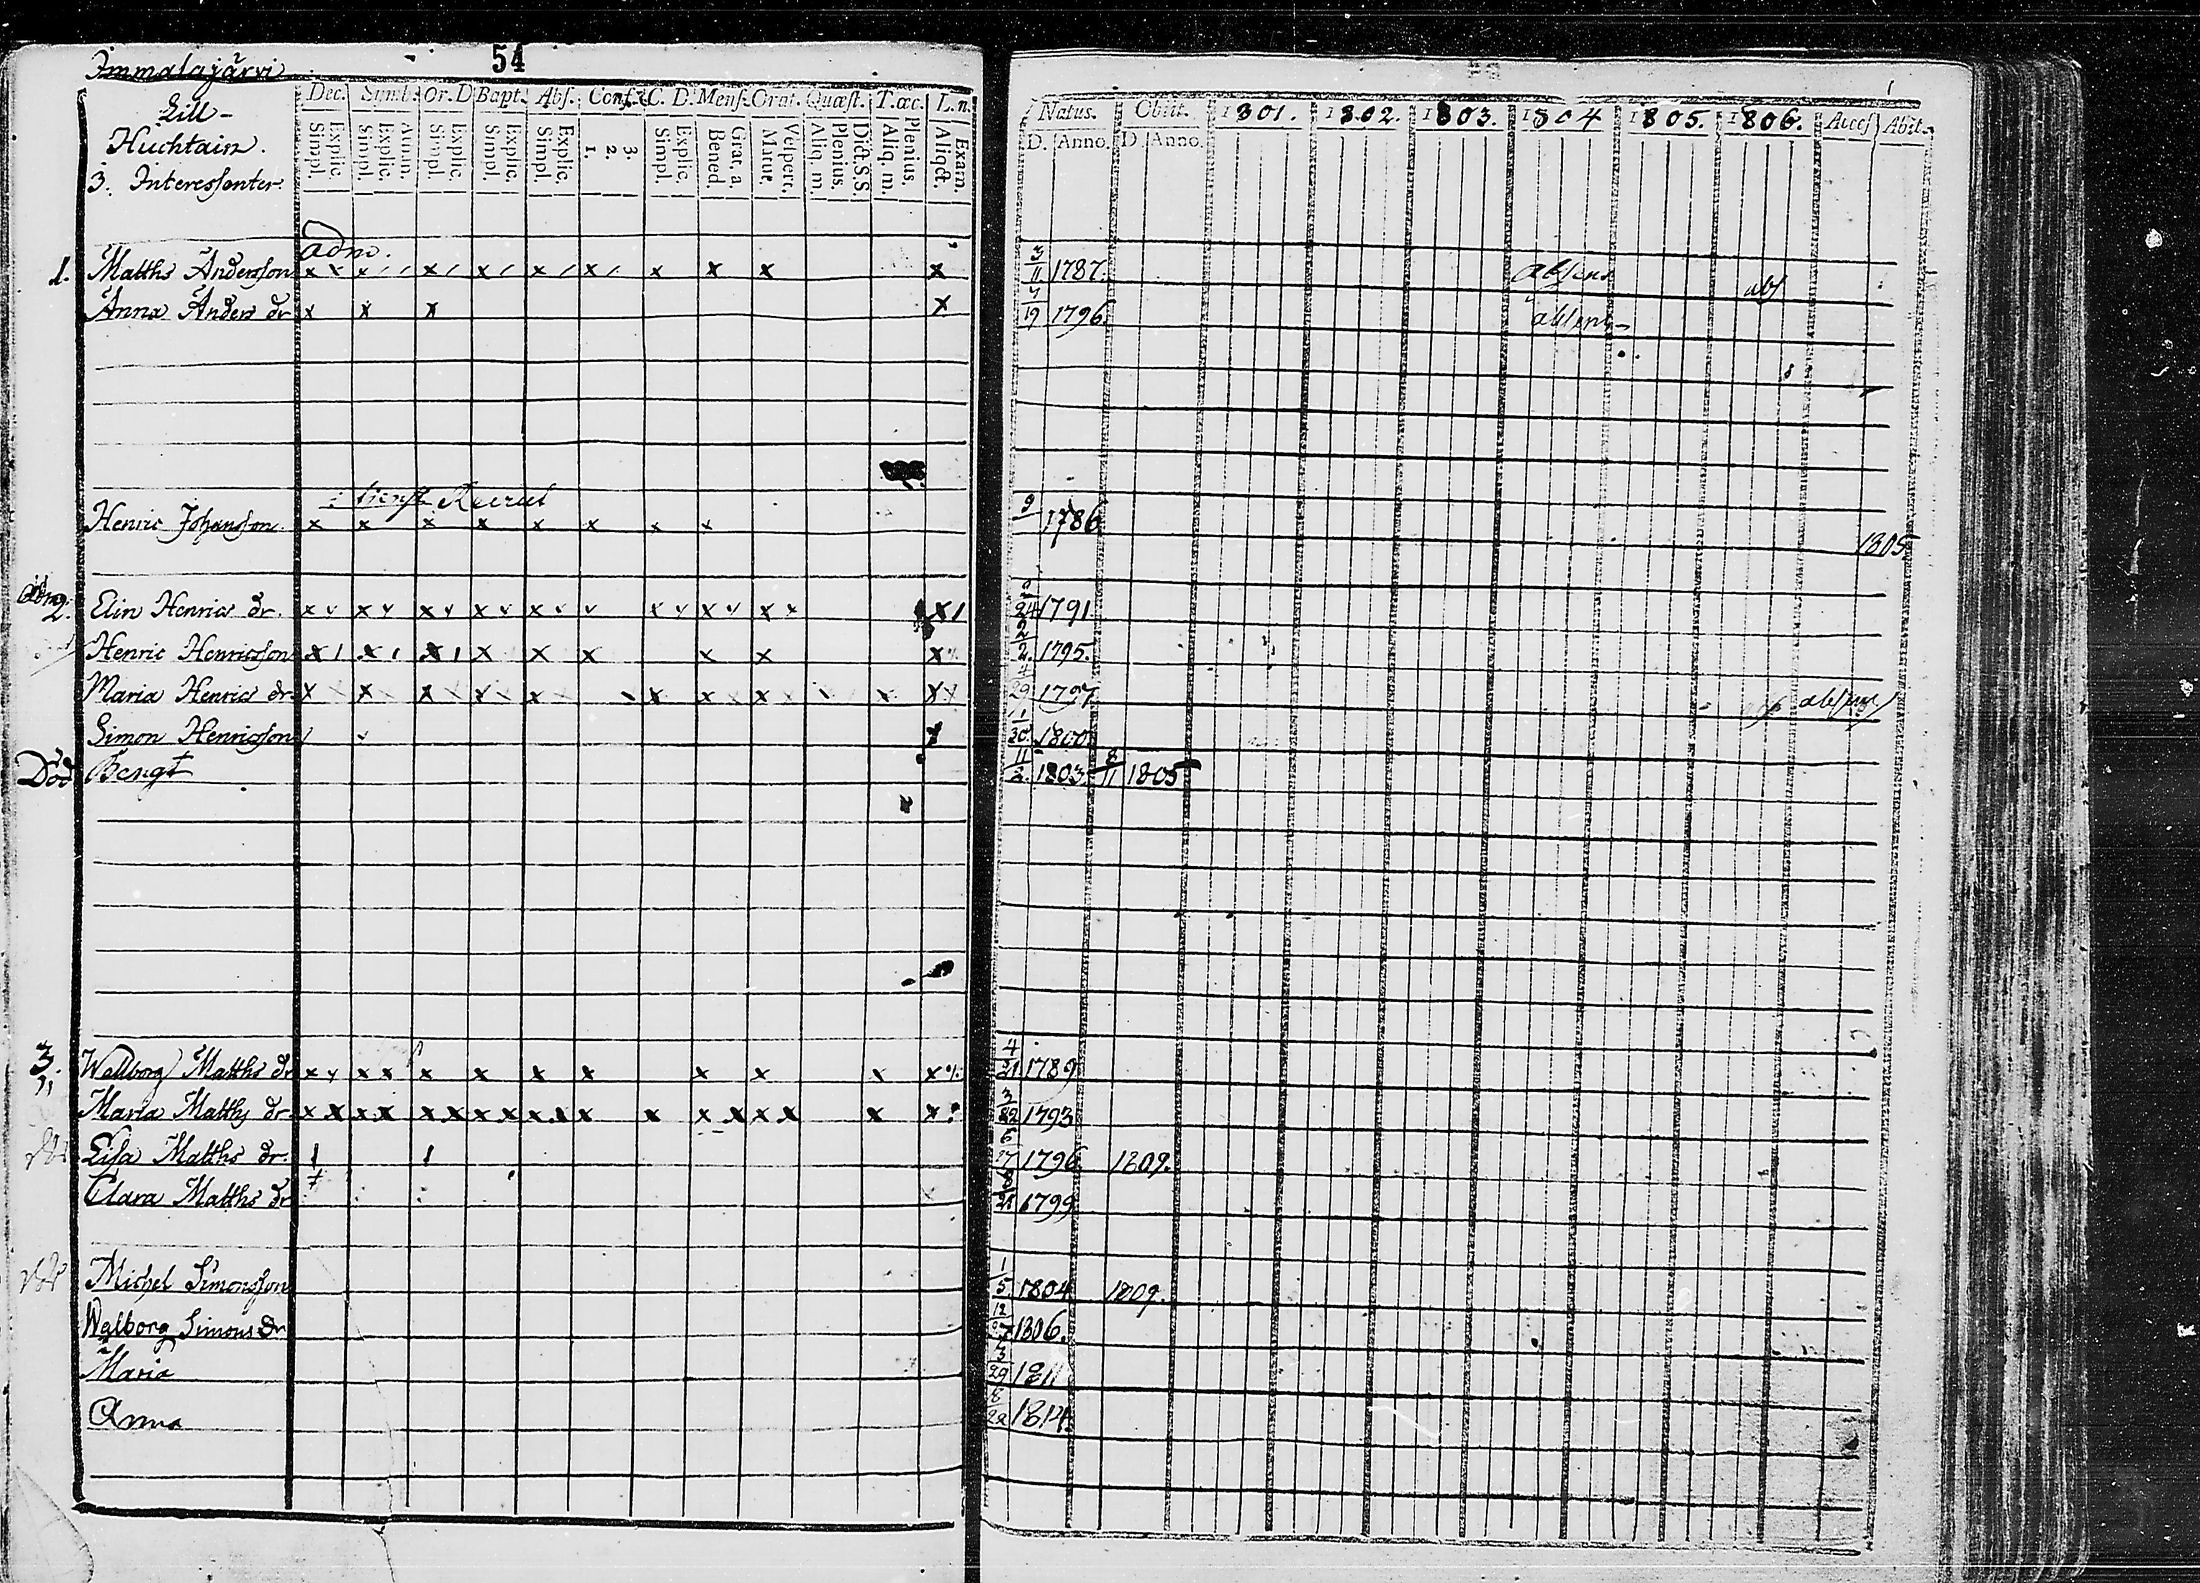 Immalajärvi 54
Lill-
Huchtain.
3. Interessenter.
Dec. Simb. Or. D Bapt. Abs. Conf. C. D. Mens. Orat. Quæst. T. œc. L. n.
Simpl. Explic. Simpl. Explic. Annu. Simpl. Explic. Simpl. Explic. Simpl. Explic. 1. 2. 3. Simpl. Explic. Bened. Grat. a. Matut. Vespert. Aliq. m. Plenius. Dict. S. S. Aliq. m. Plenius. Aliqct. Exam.
Natus. Obiit. 1801. 1802. 1803. 1804 1805. 1806. Access Abit.
D. Anno. D Anno.
adm.
1. Matths Andersson x x x x x x x x x x x 3/11 1787. absens abs
Anna Anders dr x x x x 7/19 1796. absens
Recrut
Henric Johansson x x x x x x x x 9 1786 1805
2. Elin Henrics dr. 24 1791
Henric Henricsson 2/2 1795.
Maria Henrics dr. 4/29 1797 absens
Simon Henricsson 1/30 1800
Död Bengt 11/2 1803 8/11 1805
3. Wallborg Matths dr 4/21 1789
Maria Matths dr 3/22 1793
Lisa Matths dr. 6/17 1796 1809.
Clara Matths dr 8/28 1799
Michel Simonsson 1/5 1804 1809.
Walborg Simons dr 12/27 1806.
Maria 3/29 1811
Anna 8/22 1814.